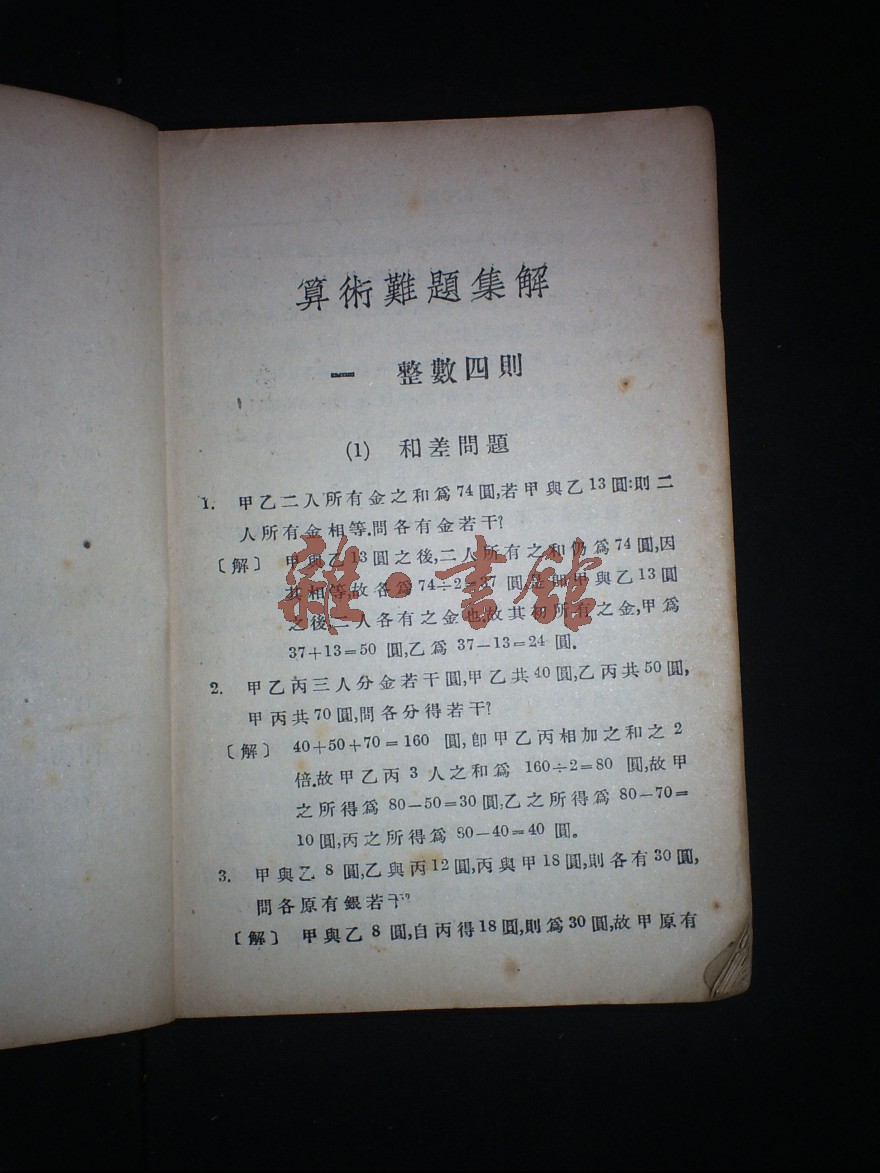 算術難題集解
一 整數四則
(1) 和差問題
1. 甲乙二人所有金之和爲74圓,若甲與乙13圓:則二
人所有金相等.問各有金若干?
〔解〕 甲與乙13圓之後,二人所有之和仍爲74圓,因
其相等,故各爲74÷2=37 圓.是卽甲與乙13圓
之後,二人各有之金也.故其初所有之金,甲爲
37+13=50 圓,乙爲 37-13=24 圓.
2. 甲乙丙三人分金若干圓,甲乙共40圓,乙丙共50圓,
甲丙共70圓,問各分得若干?
〔解〕 40+50+70=160 圓,卽甲乙丙相加之和之2
倍.故甲乙丙3人之和爲 160÷2=80 圓,故甲
之所得爲 80-50=30圓,乙之所得爲 80-70=
10圓,丙之所得爲 80-40=40 圓。
3. 甲與乙8圓,乙與丙12圓,丙與甲18圓,則各有30圓,
問各原有銀若干?
〔解〕 甲與乙8圓,自丙得18圓,則爲30圓,故甲原有
雜·書館